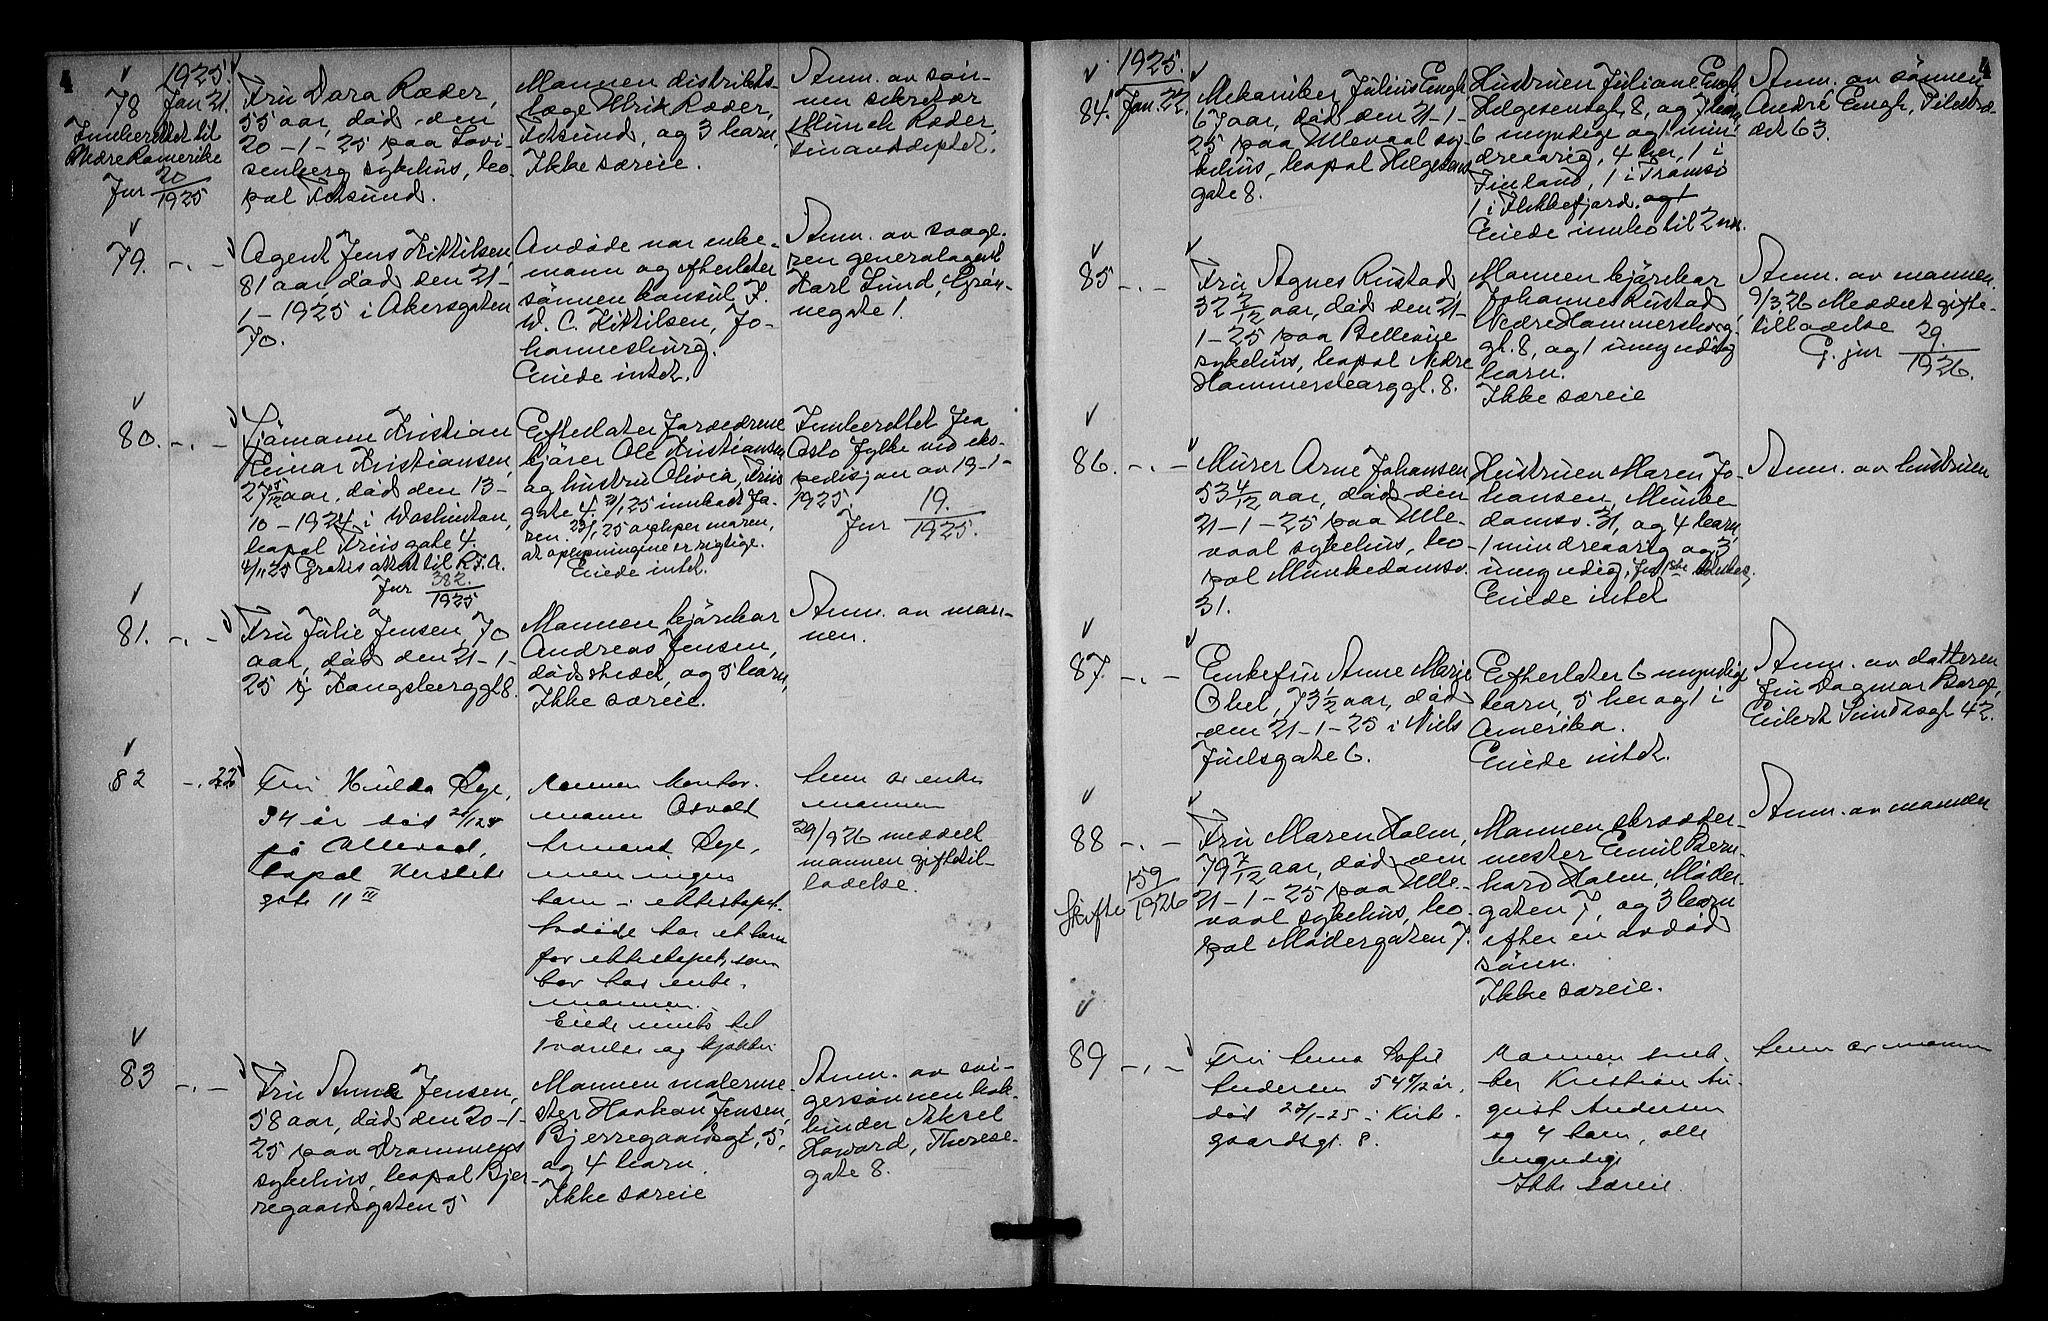 4
1925.
78 Jan 21.
Innberettet til
Nedre Romerike
Jnr 20/1925
Fru Dora Ræder,
55 aar, död den
20-1-25 paa Lovi-
senberg sykehus, bo-
pæl Fetsund.
Mannen distrikts-
læge Ulrik Ræder,
Fetsund, og 3 barn,
Ikke særeie.
Anm. av søn-
nen sekretær
Munch Ræder,
Finansdeptet.
79. -.-
Agent Jens Kittilsen,
81 aar, död den 21-
1-1925 i Akersgaten
70.
Avdöde var enke-
mann og efterlater
sönnen konsul J.
W. C. Kittilsen, Jo-
hannesburg.
Eiede intet.
Anm. av svoge-
ren generalagent
Karl Lund, Grön-
negate 1.
80. -.-
Sjömann Kristian
Reinar Kristiansen,
27 5/12 aar, död den 13-
10-1924 i Washinton,
bopæl Friis gate 4.
4/11 25 Gratis attest til R.T.A.
Jnr 382/1925
Efterlater forældrene
kjörer Ole Kristiansen
og hustru Olivia, Friis
gate 4. 21/1 25 innkaldt fa-
ren. 23/1 25 opgir moren,
at oplysningene er rigtige.
Eiede intet.
Innberettet fra
Oslo Fylke ved eks-
pedisjon av 19-1-
1925.
Jnr 19./1925.
81. -.-
Fru Julie Jensen, 70
aar, död den 21-1-
25 i Kongsberggt 8.
Mannen kjörekar
Andreas Jensen,
dödsstedet, og 5 barn,
Ikke særeie.
Anm. av man-
nen.
82 -. 22
Fru Hulda Øye,
34 år død 20/1 25
på Ullevaal,
bopæl Herslebs
gate 11 III
Mannen kontor-
mann Osvald
Amand Øye,
men ingen
barn i ekteskapet.
Avdöde har et barn
før ekteskapet, som
bor hos enke-
mannen.
Eiede innbo til
1 værelse og kjøkken
Anm av enke
mannen
29/9 26 meddelt
mannen giftetil-
ladelse.
83 -.-
Fru Anna Jensen,
58 aar, död den 20-1-
25 paa Drammens
sykehus, bopæl Bjer-
regaardsgaten 5
Mannen malerme-
ster Haakon Jensen,
Bjerregaardsgt, 5,
og 4 barn.
Ikke særeie
Anm. av svi-
gersönnen bok-
binder Aksel
Howard, Therese-
gate 8.
4
1925.
84. Jan. 22.
Mekaniker Julius Engh
67 aar, död den 21-1-
25 paa Ullevaal sy-
kehus, bopæl Helgesens
gate 8.
Hustruen Juliane Engh,
Helgesensgt. 8, og 7 barn,
6 myndige og 1 min-
dreaarig, 4 her, 1 i
Finland, 1 i Tromsö
1 i Flekkefjord, og 1
Eiede innbo til 2 vær.
Anm. av sönnen
André Engh, Pilestræ-
det 63.
85 -.-
Fru Agnes Rustad
32 7/12 aar, död den 21-
1-25 paa Bellevue
sykehus, bopæl Nedre
Hammersborggt. 8.
Mannen kjörekar
Johannes Rustad,
Nedre Hammersborg-
gt. 8, og 1 umyndig
barn.
Ikke særeie
Anm. av mannen.
9/3 26 Meddelt gifte-
tilladelse
G. jnr 29./1926.
86. -.-
Murer Arne Johansen
53 4/12 aar, död den
21-1-25 paa Ulle-
vaal sykehus, bo-
pæl Munkedamsv.
31.
Hustruen Maren Jo-
hansen, Munke-
damsv. 31, og 4 barn,
1 mindreaarig og 3
umyndig,
Eiede intet
Anm. av hustruen
87. -.-
Enkefru Anne Marie
Obel, 73 1/2 aar, död
den 21-1-25 i Niels
Juelsgate 6.
Efterlater 6 myndige
barn, 5 her og 1 i
Amerika.
Eiede intet.
Anm. av datteren
fru Dagmar Borge,
Eilert Sundtsgt 42.
88 -.-
Skifte 159/1926
Fru Maren Holm,
79 7/12 aar, död den
21-1-25 paa Ulle-
vaal sykehus, bo-
pæl Mödergaten 7.
Mannen skrædder-
mester Emil Bern-
hard Holm, Möder-
gaten 7, og 3 barn
efter en avdöd
sönn.
Ikke særeie.
Anm. av mannen
89 -.-
Fru Anna Sofie
Andersen 54 9/12 år,
död 22/1-25 i Kirke-
gaardsgt. 8.
Mannen snek-
ker Kristian Au-
gust Andersen
og 4 barn, alle
myndige
Ikke særeie.
Anm av mannen